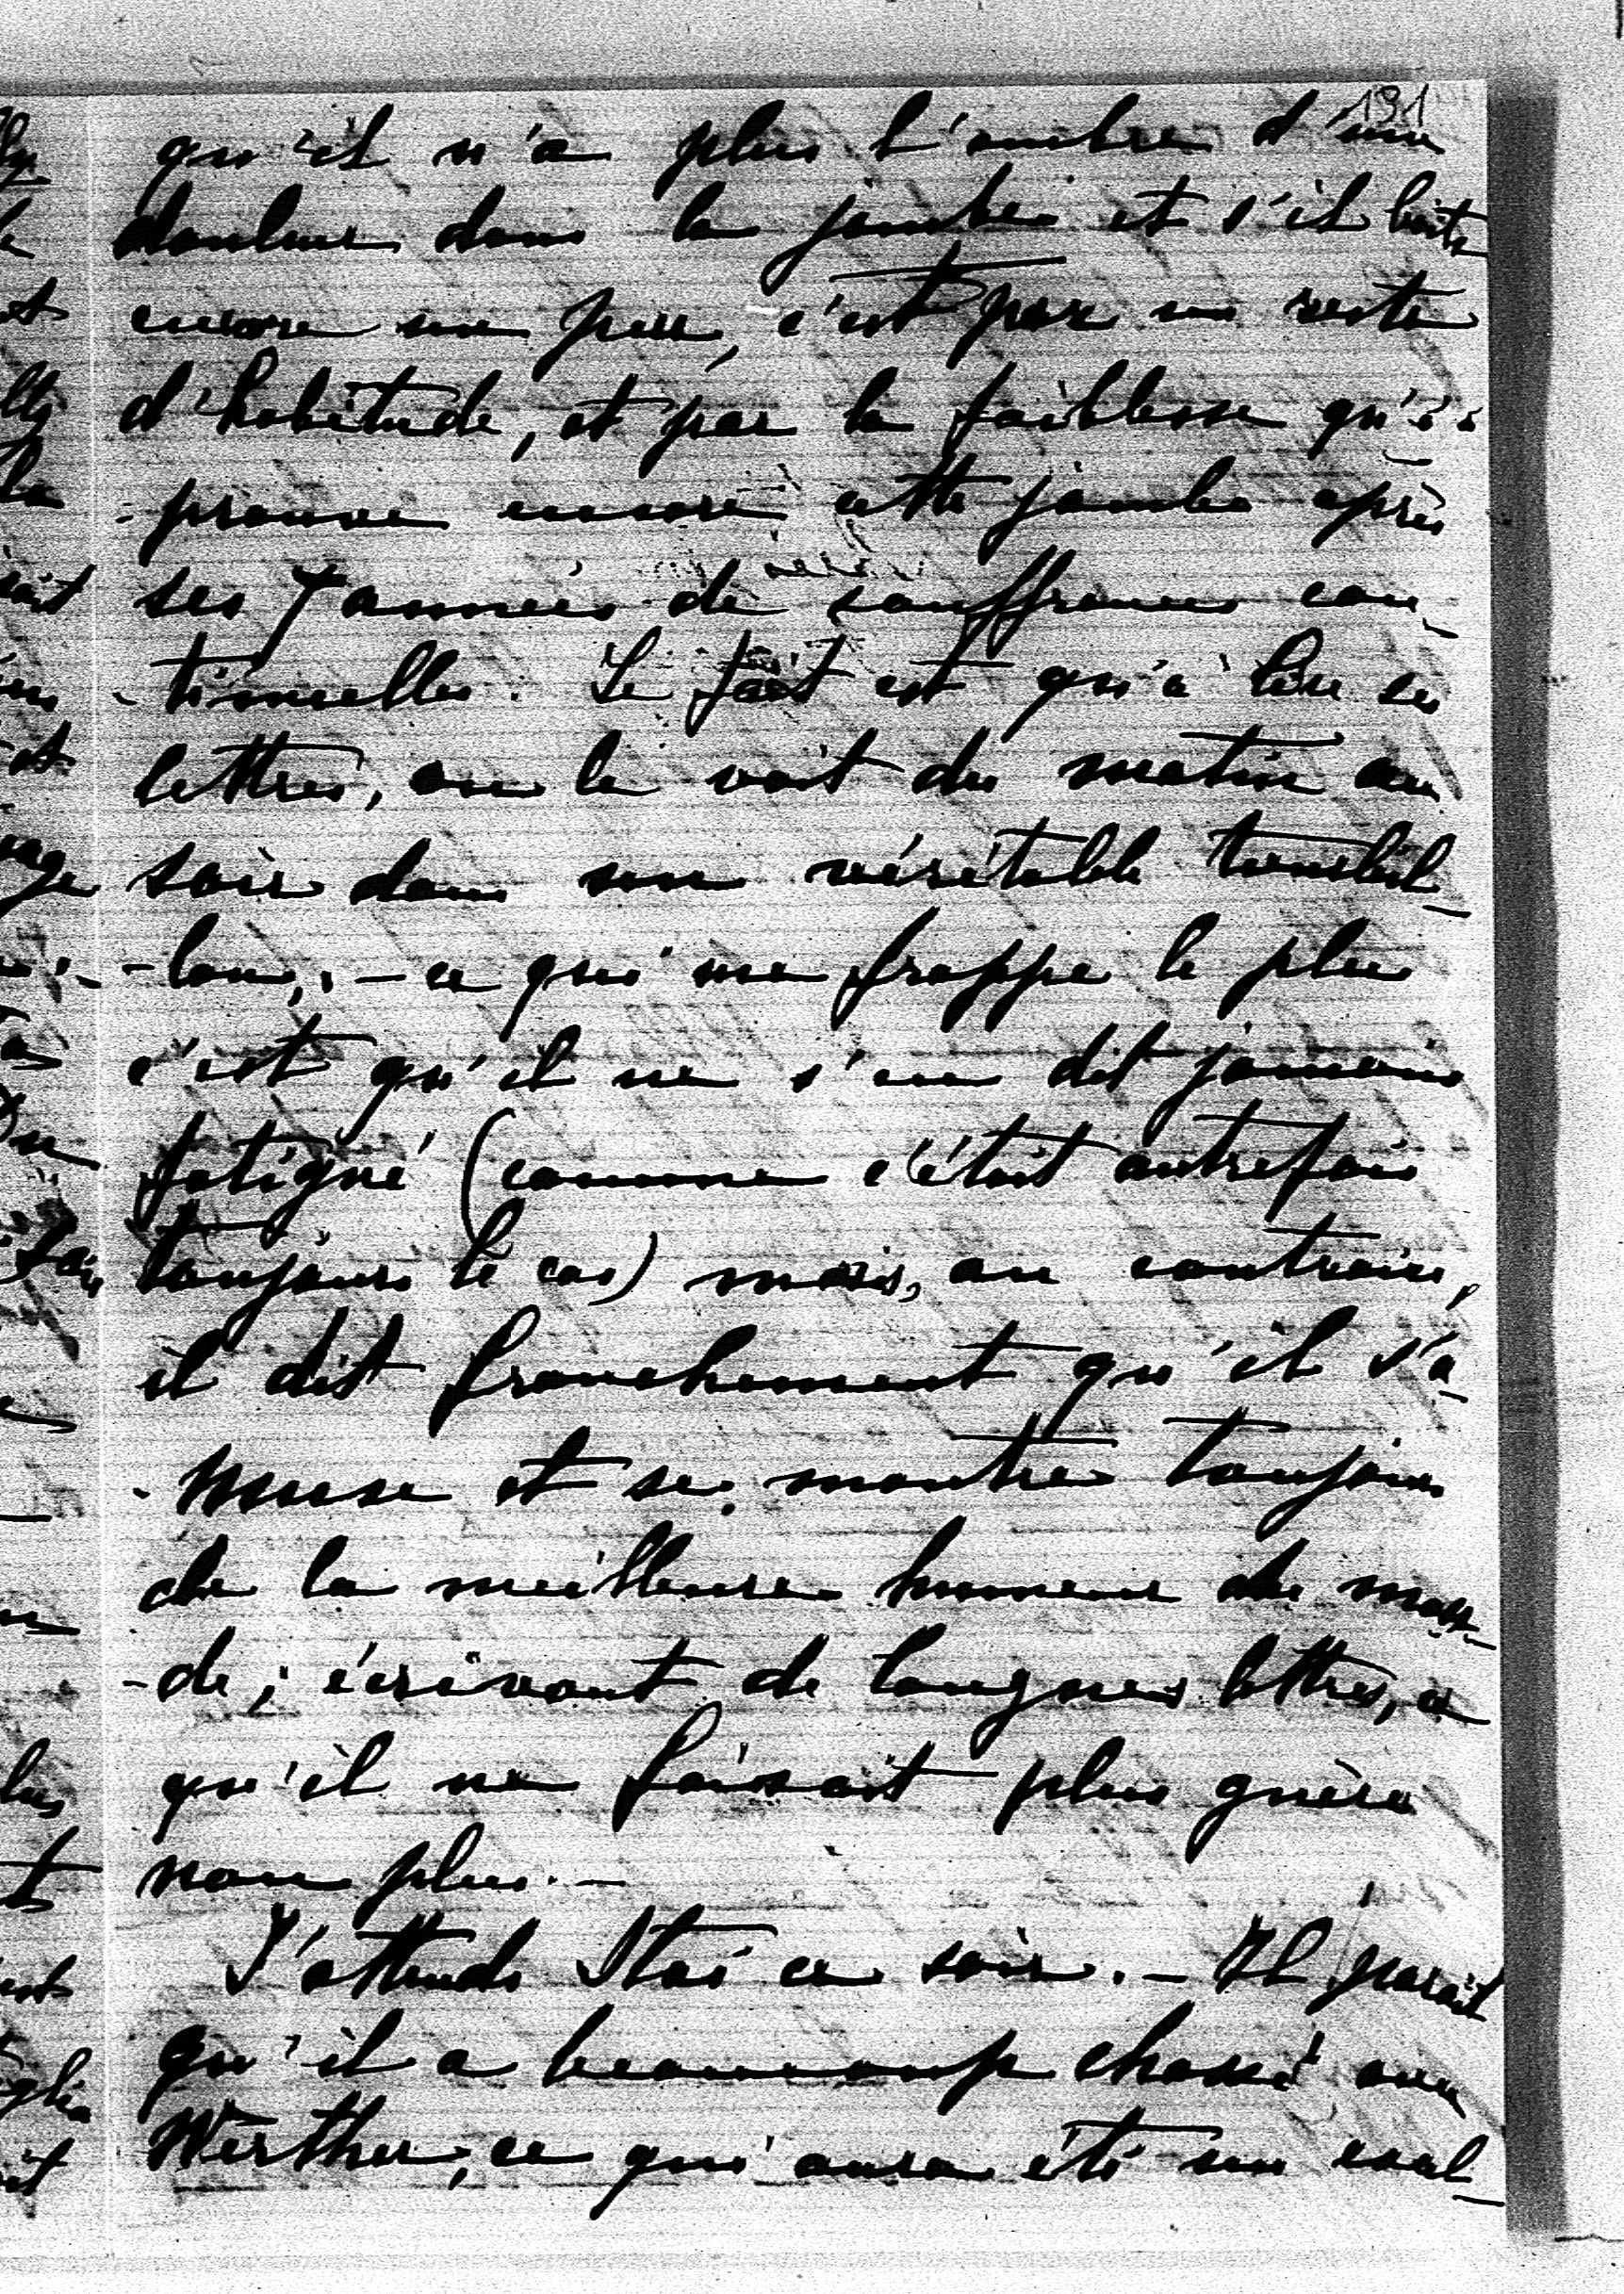 191
qu'il n'a plus l'ombre d'une
douleur dans la jambe et s'il boite
encore un peu, c'est par un reste
d'habitude, et par la faiblesse qu'é-
-prouve encore cette jambe après
ses 7 années de souffrances con-
-tinuelles. Le fait est qu'à lire ses
lettres, on le voit du matin au
soir dans un véritable tourbil-
-lon, - ce qui me frappe le plus
c'est qu'il ne s'en dit jamais
fatigué (comme c'était autrefois
toujours le cas) mais, au contraire,
il dit franchement qu'il s'a-
-muse et se montre toujours
de la meilleure humeur du mon-
-de; écrivant de longues lettres, ce
qu'il ne faisait plus guère
non plus. -
J'attends Stoï ce soir. - Il paraît
qu'il a beaucoup chassé avec
Werther, ce qui aura été un coul-